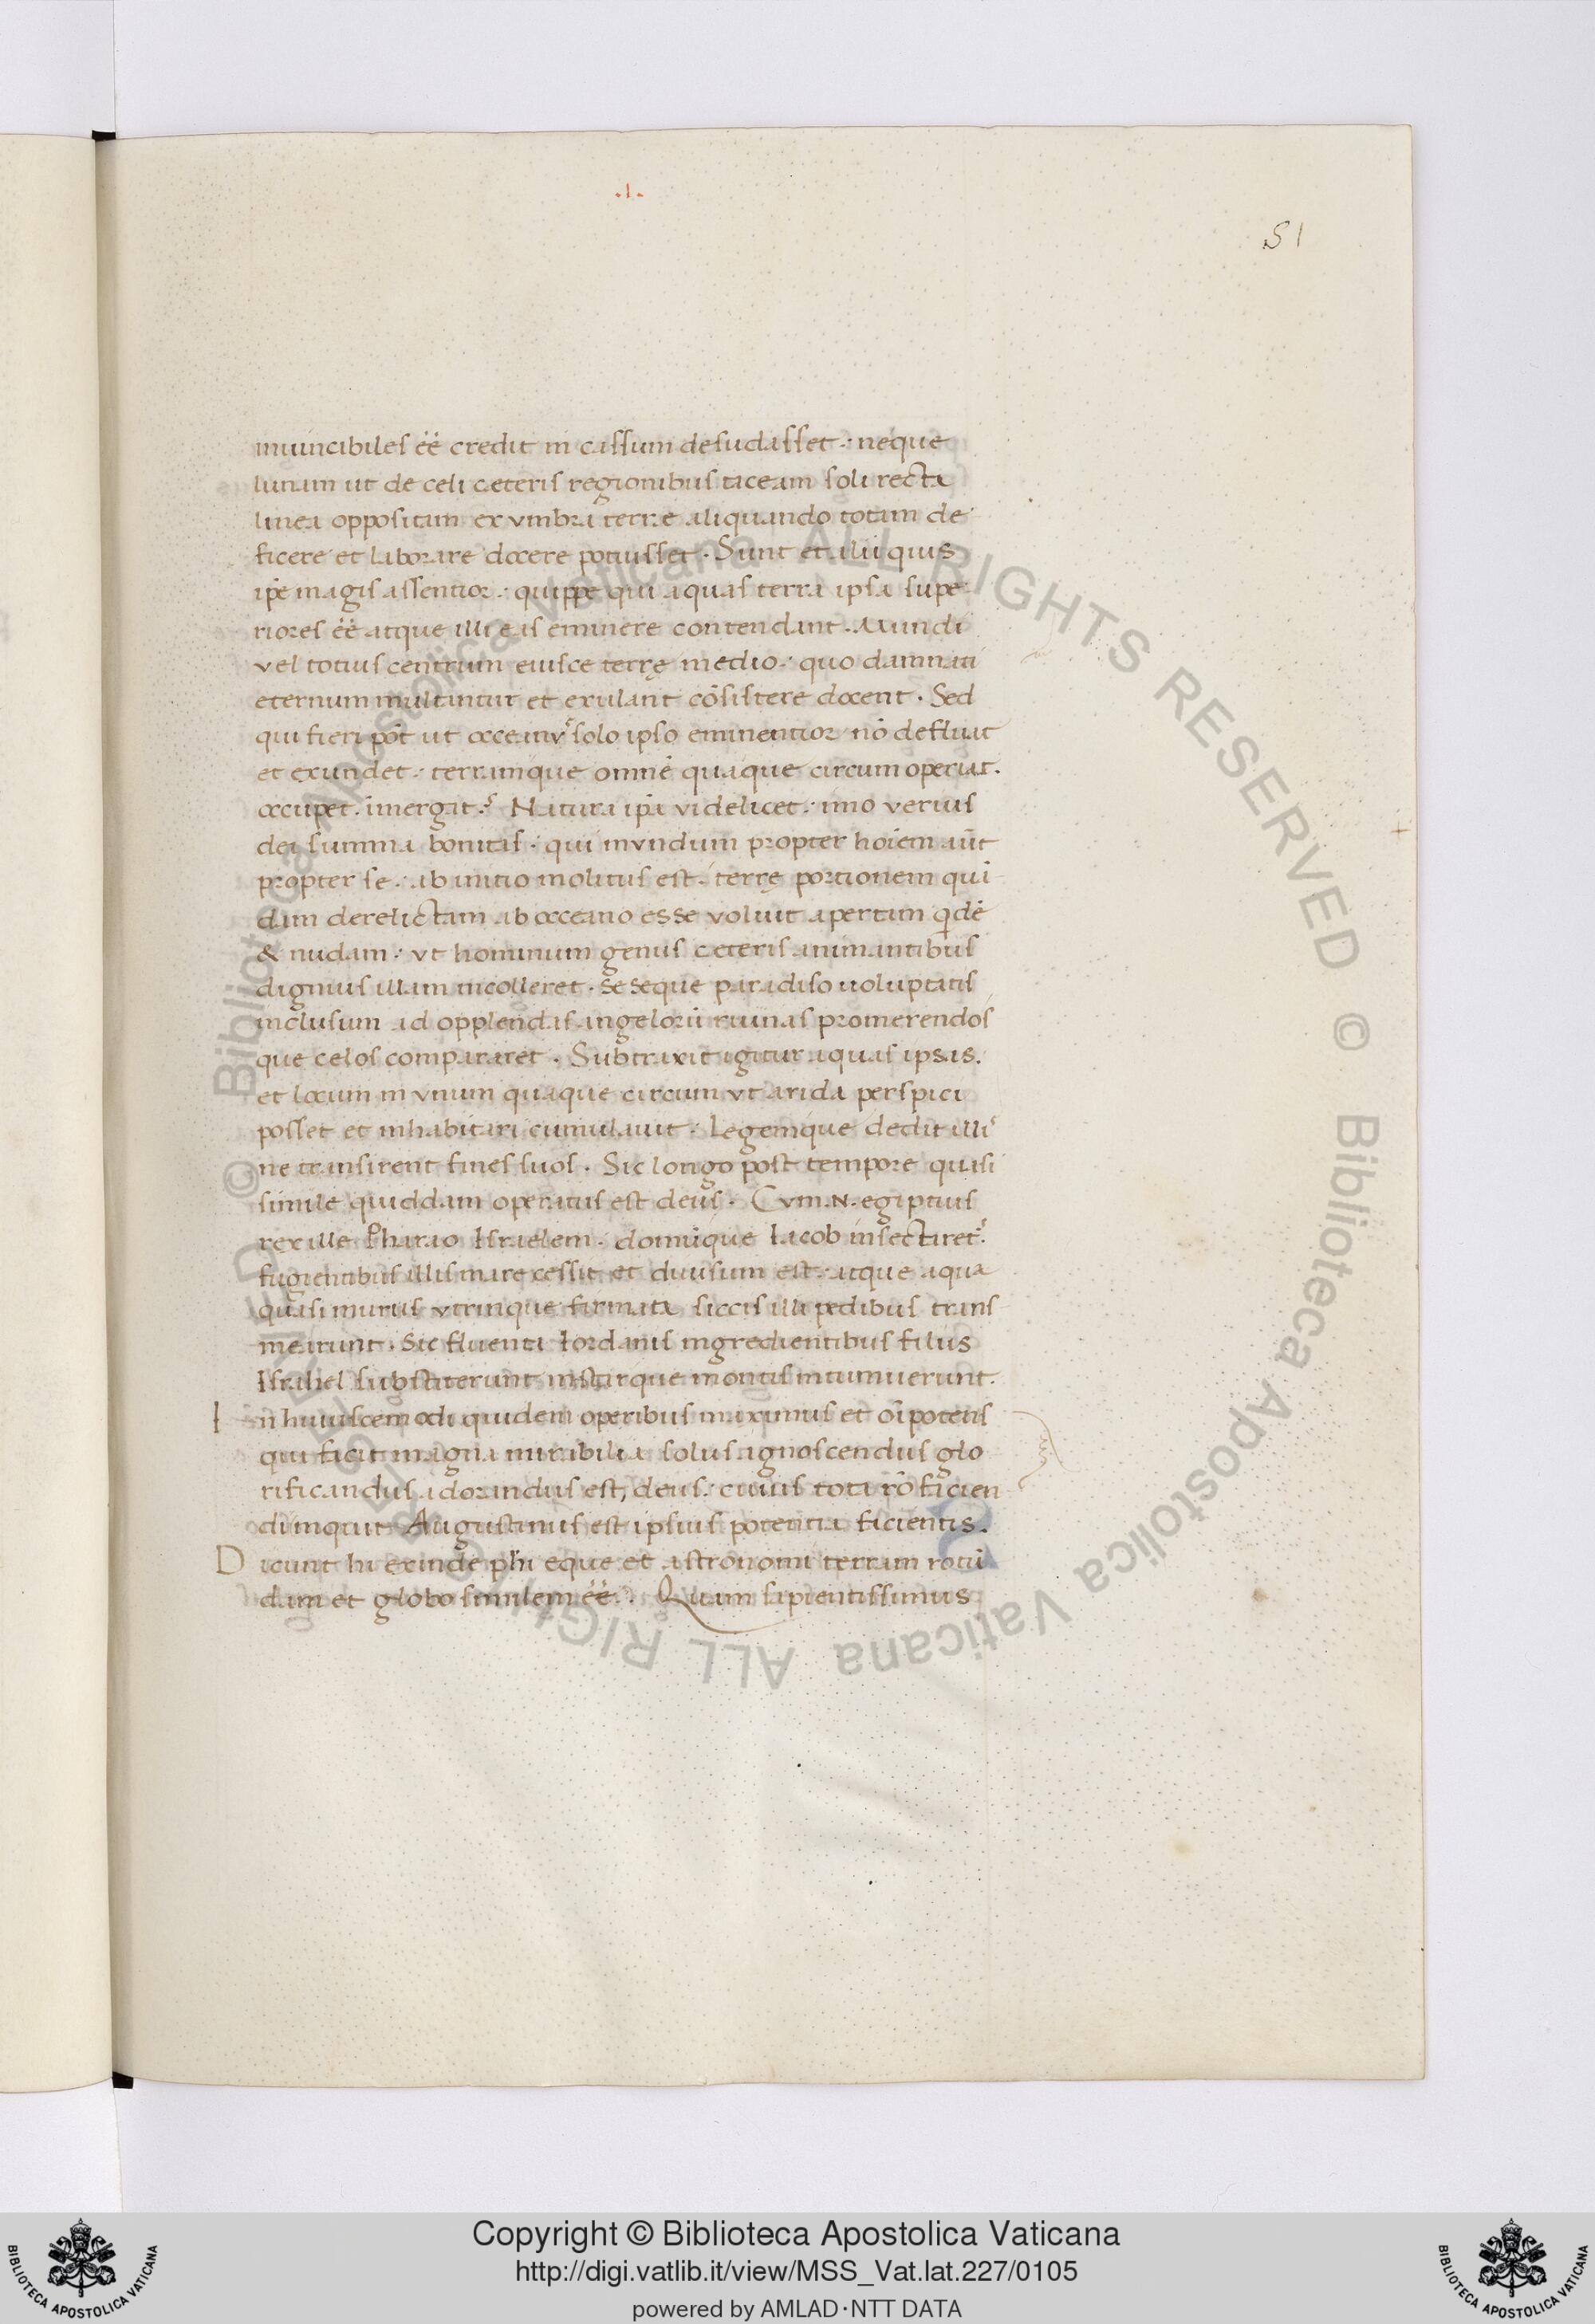 .I.
51
inuincibiles eē credit in cassum desudasset: neque
lunam ut de celi ceteris regionibus taceam soli recta
linea oppositam ex vmbra terre aliquando totam de
ficere et laborare docere potuisset. Sunt et alii quis
ipe magis assentior: quippe qui aquas terra ipsa supe
riores eē atque illi eas eminere contendant. Mundi
vel totius centrum eiusce terrę medio: quo damnati
eternum multantur et exulant cōsistere docent. Sed
qui fieri pōt ut occeanus solo ipso eminentior nō defluat
et exundet: terramque omnē quaque circum operiat.
occupet. imergat? Natura ipa videlicet: imo verius
dei summa bonitas: qui mvndum propter hoīem aūt
propter se: ab initio molitus est: terrę portionem qui
dam derelictam ab occeano esse voluit apertam qdē
& nudam: vt hominum genus ceteris animantibus
dignius illam incolleret. seseque paradiso uoluptatis
inclusum ad opplendas angelorū ruinas promerendos
que celos compararet. Subtraxit igitur aquas ipsas.
et locum in vnum quaque circum vt arida perspici
posset et inhabitari cumulauit. Legemque dedit illis
ne transirent fines suos. Sic longo post tempore quasi
simile quiddam operatus est deus. Cvm .N. egiptius
rex ille Pharao Israelem. domūque Iacob insectaret:
fugientibus illis mare cessit et diuisum est: atque aqua
quasi murus vtrinque firmata siccis illi pedibus trans
mearunt. Sic fluenta Iordanis ingredientibus filiis
Israhel substiterunt instarque montis intumuerunt.
In huiuscemodi quidem operibus maximus et oīpotens
qui facit magna mirabilia solus agnoscendus glo
rificandus adorandus est, deus: cuius tota rō facien
di inquit Augustinus est ipsius potentia facientis.
Dicunt hi exinde phi eque et astronomi terram rotū
dam et globo similem eē. Quam sapientissimus
© Biblioteca Apostolica Vaticana ALL RIGHTS RESERVED © Biblioteca Apostolica Vaticana ALL RIGHTS RESERVED
Copyright © Biblioteca Apostolica Vaticana
http://digi.vatlib.it/view/MSS_Vat.lat.227/0105
powered by AMLAD·NTT DATA
BIBLIOTECA APOSTOLICA VATICANA
BIBLIOTECA APOSTOLICA VATICANA